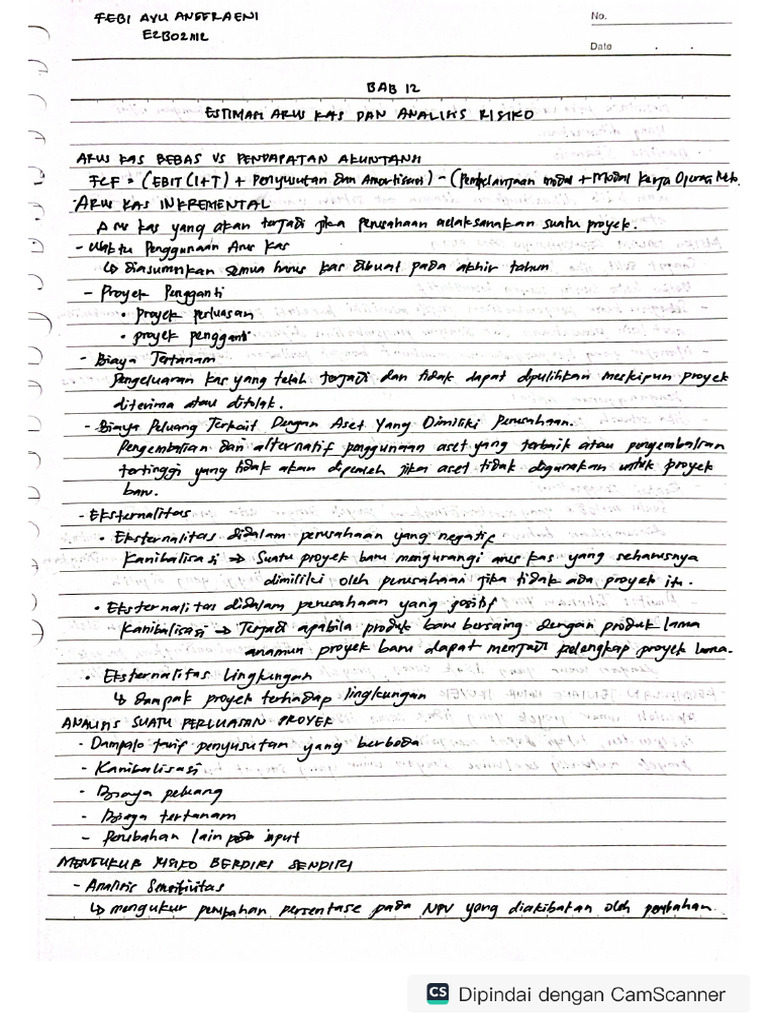 FEBI AYU ANGGRAENI
No.
E2B021112
Date . .
BAB 12
ESTIMASI ARUS KAS DAN ANALISIS RISIKO
ARUS KAS BEBAS VS PENDAPATAN AKUNTANSI
FCF = (EBIT(1+T) + Penyusutan dan Amortisasi) - (Pembelanjaan modal + Modal Kerja Operasi Neto.
- ARUS KAS INKREMENTAL
Arus kas yang akan terjadi jika perusahaan melaksanakan suatu proyek.
- Waktu Penggunaan Arus Kas
↳ diasumsikan semua harus kas dibuat pada akhir tahun
- Proyek Pengganti
• Proyek perluasan
• proyek pengganti
- Biaya Tertanam
Pengeluaran kas yang telah terjadi dan tidak dapat dipulihkan meskipun proyek
diterima atau ditolak.
- Biaya Peluang Terkait Dengan Aset Yang Dimiliki Perusahaan.
Pengembalian dari alternatif penggunaan aset yang terbaik atau pengembalian
tertinggi yang tidak akan diperoleh jika aset tidak digunakan untuk proyek
baru.
- Eksternalitas
• Eksternalitas didalam perusahaan yang negatif
Kanibalisasi → Suatu proyek baru mengurangi arus kas yang seharusnya
dimiliki oleh perusahaan jika tidak ada proyek itu.
• Eksternalitas didalam perusahaan yang positif
Kanibalisasi → Terjadi apabila produk baru bersaing dengan produk lama
anamun proyek baru dapat menjadi pelengkap proyek lama.
• Eksternalitas Lingkungan
↳ dampak proyek terhadap lingkungan
ANALISIS SUATU PERLUASAN PROYEK
- Dampak tarif penyusutan yang berbeda
- Kanibalisasi
- Biaya peluang
- Biaya tertanam
- Perubahan lain pada input
MENGUKUR RISIKO BERDIRI SENDIRI
- Analisis Sensitivitas
↳ mengukur perubahan persentase pada NPV yang diakibatan oleh perubahan
CS Dipindai dengan CamScanner